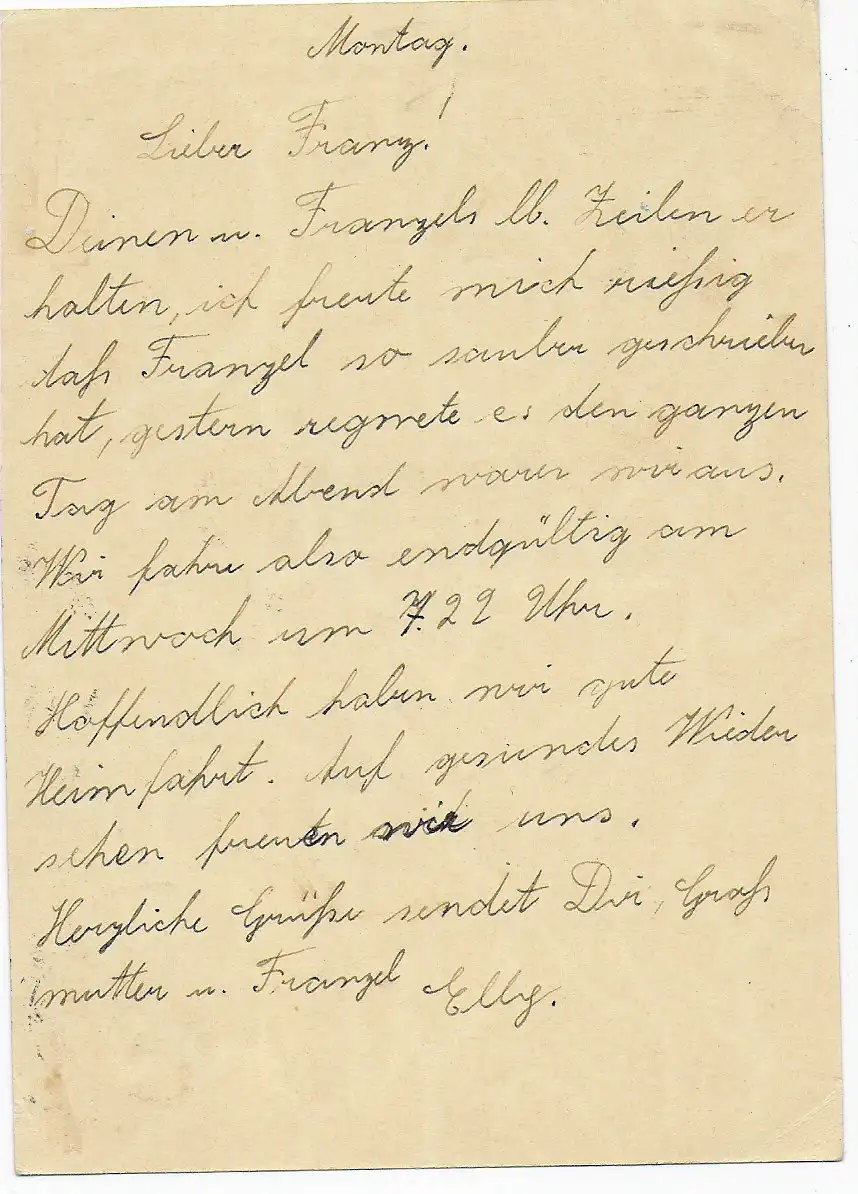 Montag.
Lieber Franz!
Deinen u. Franzels lb. Zeilen er
halten, ich freute mich rießig
daß Franzel so sauber geschrieben
hat, gestern regnete es den ganzen
Tag am Abend waren wir aus.
Wir fahren also endgültig am
Mittwoch um 7.22 Uhr.
Hoffendlich haben wir gute
Heimfahrt. Auf gesundes Wieder
sehen freuen wir uns.
Herzliche Grüße sendet Dir, Groß
mutter u. Franzel Elly.